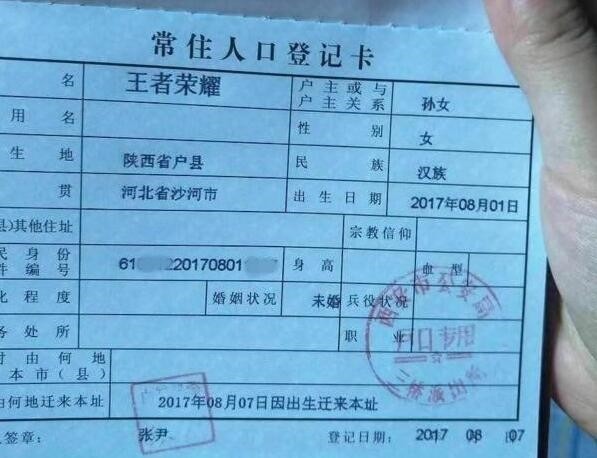 常住人口登记卡
名 王者荣耀 户主或与户主关系 孙女
用名 性别 女
生地 陕西省户县 民族 汉族
贯 河北省沙河市 出生日期 2017年08月01日
县)其他住址 宗教信仰
民身份件编号 61 220170801 身高 血型
化程度 婚姻状况 未婚 兵役状况
务处所 职业
由何地本市(县)
何地迁来本址 2017年08月07日因出生迁来本址
签章: 张尹 登记日期: 2017 08 07
西安市公安局
户口专用
三桥派出所